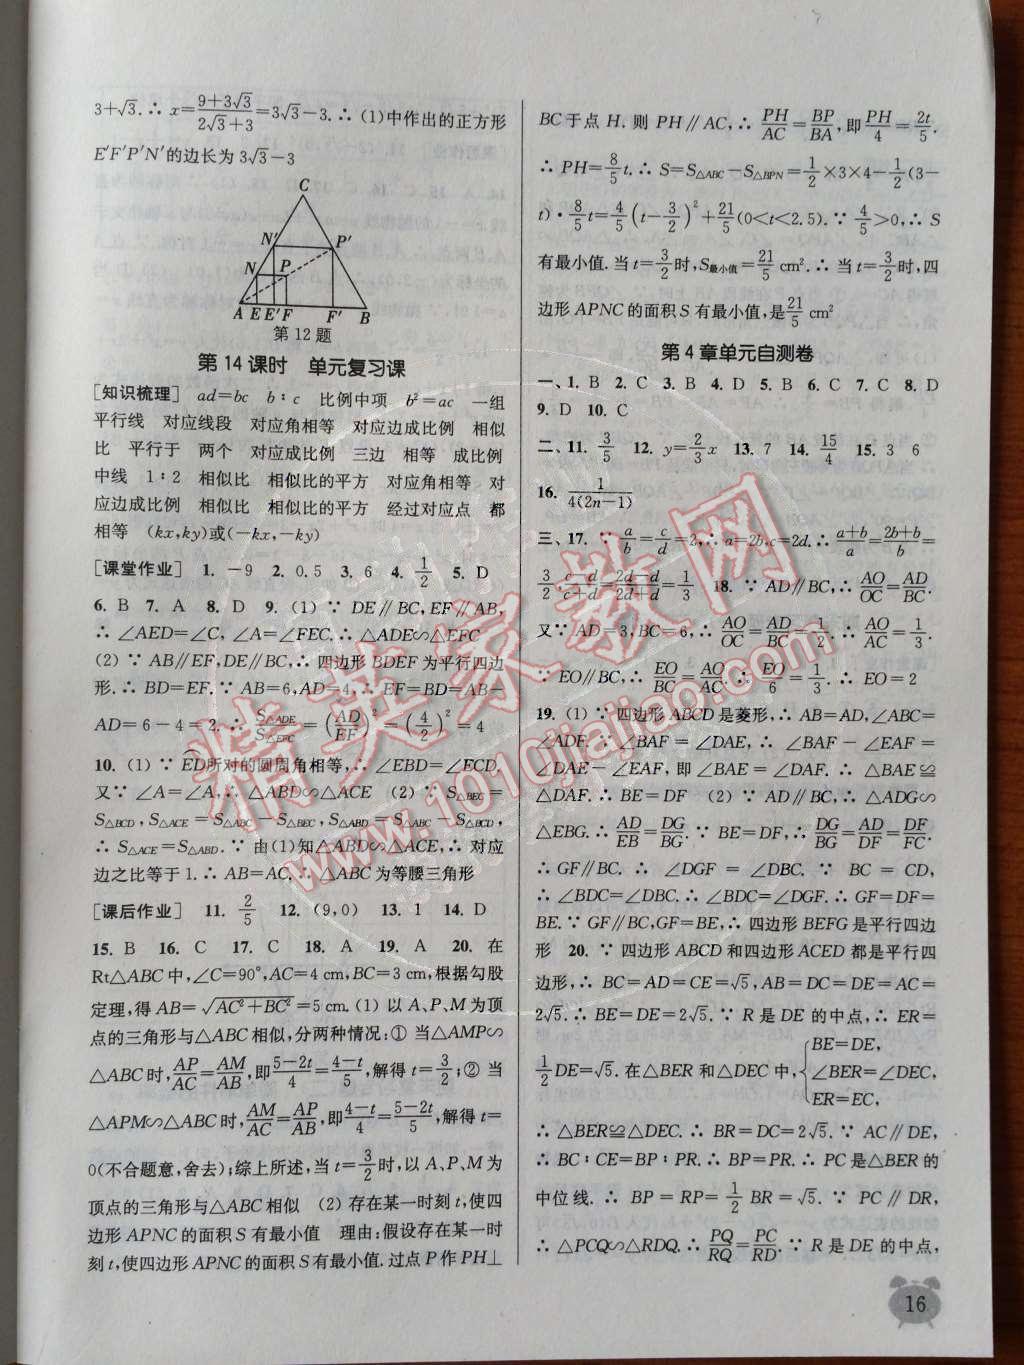 3+√3. ∴ x=(9+3√3)/(2√3+3)=3√3−3. ∴ (1)中作出的正方形
E′F′P′N′的边长为 3√3−3
C
N′ P′
N P
A E E′ F F′ B
第12题
第14课时 单元复习课
[知识梳理] ad=bc b∶c 比例中项 b²=ac 一组
平行线 对应线段 对应角相等 对应边成比例 相似
比 平行于 两个 对应成比例 三边 相等 成比例
中线 1∶2 相似比 相似比的平方 对应角相等 对
应边成比例 相似比 相似比的平方 经过对应点 都
相等 (kx,ky)或(−kx,−ky)
[课堂作业] 1. −9 2. 0.5 3. 6 4. 1/2 5. D
6. B 7. A 8. D 9. (1) ∵ DE∥BC,EF∥AB,
∴ ∠AED=∠C, ∠A=∠FEC. ∴ △ADE∽△EFC
(2) ∵ AB∥EF,DE∥BC,∴ 四边形 BDEF 为平行四边
形. ∴ BD=EF. ∵ AB=6,AD=4,∴ EF=BD=AB−
AD=6−4=2. ∴ S△ADE/S△EFC=(AD/EF)²=(4/2)²=4
10. (1) ∵ ED所对的圆周角相等,∴ ∠EBD=∠ECD.
又∵ ∠A=∠A,∴ △ABD∽△ACE (2) ∵ S△BEC=
S△BCD,S△ACE=S△ABC−S△BEC,S△ABD=S△ABC−S△BCD,
∴ S△ACE=S△ABD. ∵ 由(1)知△ABD∽△ACE,∴ 对应
边之比等于 1. ∴ AB=AC. ∴ △ABC 为等腰三角形
[课后作业] 11. 2/5 12. (9,0) 13. 1 14. D
15. B 16. C 17. C 18. A 19. A 20. 在
Rt△ABC 中,∠C=90°,AC=4 cm,BC=3 cm,根据勾股
定理,得 AB=√(AC²+BC²)=5 cm. (1) 以 A、P、M 为顶
点的三角形与△ABC 相似,分两种情况:① 当△AMP∽
△ABC 时,AP/AC=AM/AB,即(5−2t)/4=(4−t)/5,解得 t=3/2;② 当
△APM∽△ABC 时,AM/AC=AP/AB,即(4−t)/4=(5−2t)/5,解得 t=
0(不合题意,舍去);综上所述,当 t=3/2时,以 A、P、M 为
顶点的三角形与△ABC 相似 (2) 存在某一时刻 t,使四
边形 APNC 的面积 S 有最小值 理由:假设存在某一时
刻 t,使四边形 APNC 的面积 S 有最小值. 过点 P 作 PH⊥
BC 于点 H. 则 PH∥AC,∴ PH/AC=BP/BA,即PH/4=2t/5.
∴ PH=8/5t. ∴ S=S△ABC−S△BPN=1/2×3×4−1/2(3−
t)·8/5t=4/5(t−3/2)²+21/5(0<t<2.5). ∵ 4/5>0,∴ S
有最小值. 当 t=3/2时,S最小值=21/5 cm². ∴ 当 t=3/2时,四
边形 APNC 的面积 S 有最小值,是21/5 cm²
第4章单元自测卷
一、1. B 2. C 3. C 4. D 5. B 6. C 7. C 8. D
9. D 10. C
二、11. 3/5 12. y=2/3x 13. 7 14. 15/4 15. 3 6
16. 1/(4(2n−1))
三、17. ∵ a/b=c/d=2,∴ a=2b,c=2d. ∴ (a+b)/a=(2b+b)/=
3/2 (c−d)/(c+d)=(2d−d)/(2d+d)=1/3 18. ∵ AD∥BC,∴ AO/OC=AD/BC.
又∵ AD=3,BC=6,∴ AO/OC=AD/BC=1/2. ∴ AO/AC=1/3.
∵ EO∥BC,∴ EO/BC=AO/AC. ∴ EO/6=1/3. ∴ EO=2
19. (1) ∵ 四边形 ABCD 是菱形,∴ AB=AD,∠ABC=
∠ADF. ∵ ∠BAF=∠DAE,∴ ∠BAF−∠EAF=
∠DAE−∠EAF,即 ∠BAE=∠DAF. ∴ △BAE≌
△DAF. ∴ BE=DF (2) ∵ AD∥BC,∴ △ADG∽
△EBG. ∴ AD/EB=DG/BG. ∵ BE=DF,∴ DG/BG=AD/DF=DF/FC.
∴ GF∥BC. ∴ ∠DGF=∠DBC. ∵ BC=CD,
∴ ∠BDC=∠DBC. ∴ ∠BDC=∠DGF. ∴ GF=DF=
BE. ∵ GF∥BC,GF=BE,∴ 四边形 BEFG 是平行四边
形 20. ∵ 四边形 ABCD 和四边形 ACED 都是平行四
边形,∴ BC=AD=CE=√5,AB=DC=DE=AC=
2√5. ∴ BE=DE=2√5. ∵ R 是 DE 的中点,∴ ER=
1/2DE=√5. 在△BER 和△DEC 中,{BE=DE, ∠BER=∠DEC, ER=EC,
∴ △BER≌△DEC. ∴ BR=DC=2√5. ∵ AC∥DE,
∴ BC∶CE=BP∶PR. ∴ BP=PR. ∴ PC 是△BER 的
中位线. ∴ BP=RP=1/2BR=√5. ∵ PC∥DR,
∴ △PCQ∽△RDQ. ∴ PQ/RQ=PC/RD. ∵ R 是 DE 的中点,
16
精英家教网
www.1010jiajiao.com